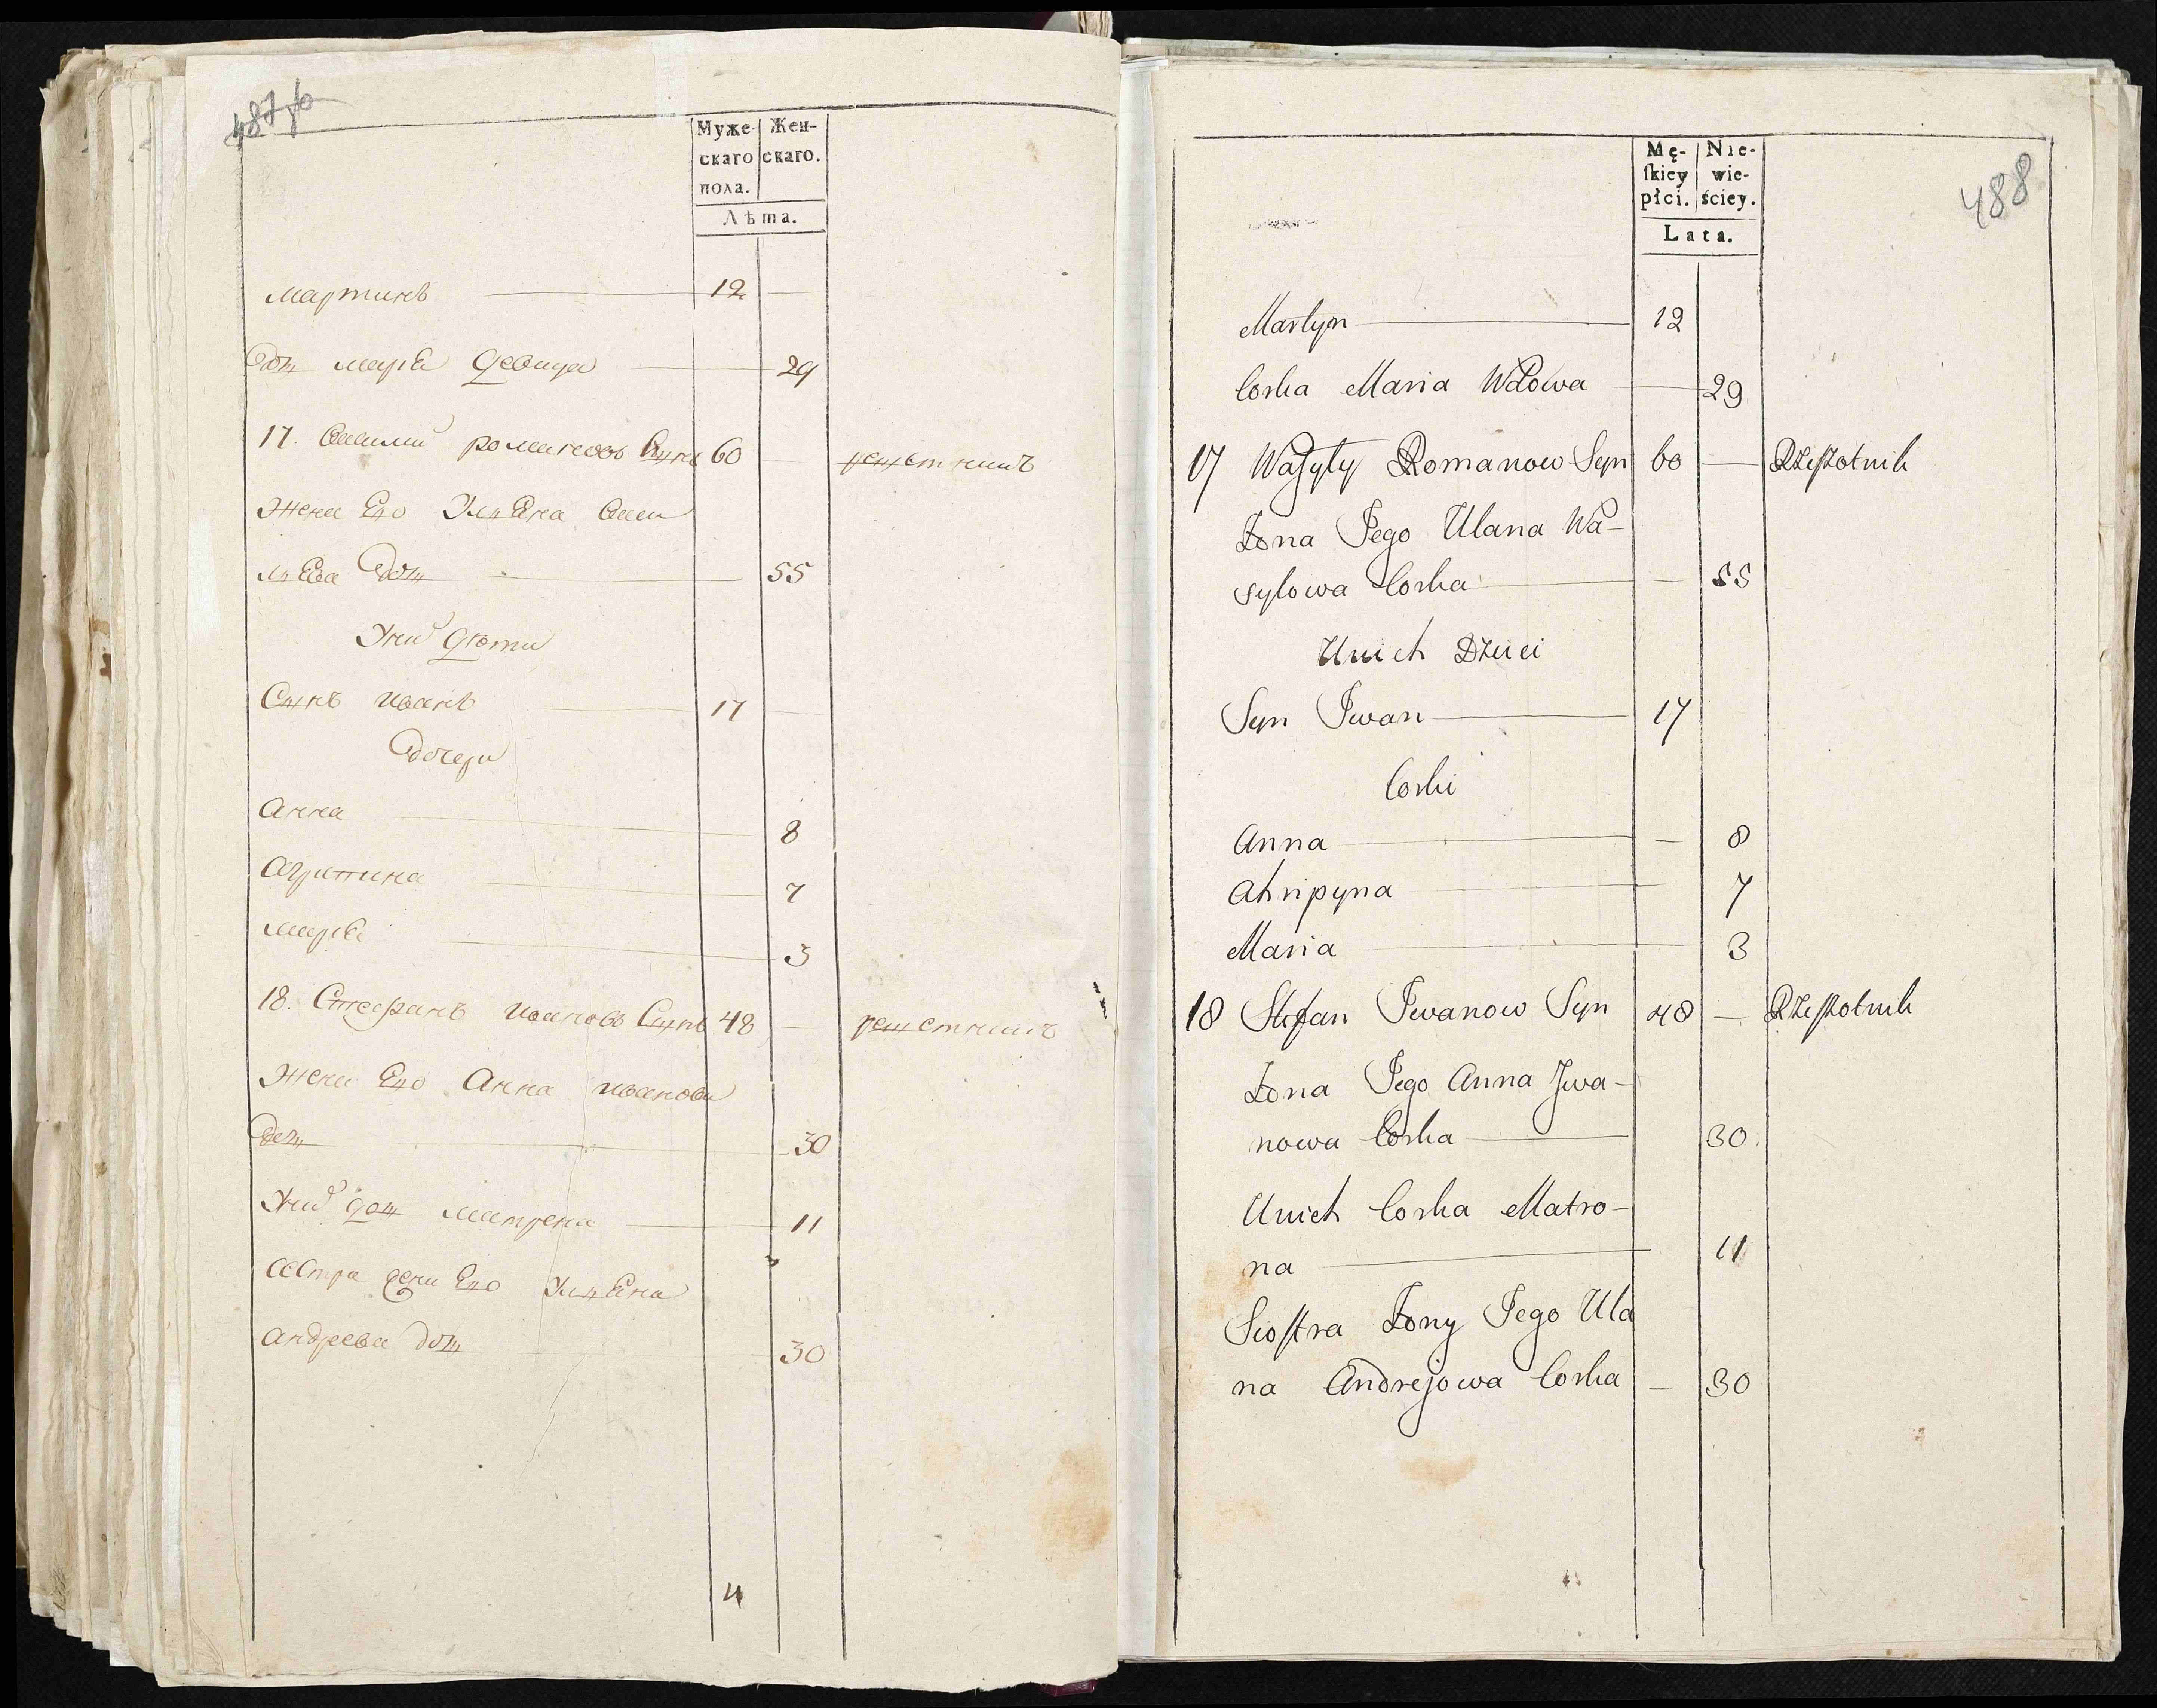 487 об
Муже- Жен-
скаго скаго.
пола.
Лѣта.
Мартинъ 12
дощ марья девица 29
17. Васили романовъ Сынъ 60 решетникъ
Жена Его Ульяна Васи
льева дощ 55
У ни дѣти
Сынъ иванъ 17
дочери
Анна 8
Агрипина 7
марья 3
18. Стефанъ ивановъ Сынъ 48 решетникъ
Жена Его Анна иванова
дощ 30
У ни дощ матрена 11
Сестра жены Его Ульяна
андреева дощ 30
4
488
Mę- Nie-
ſkiey wie-
płci. ściey.
Lata.
Martyn 12
Corka Maria Wdowa 29
17 Waſyly Romanow Syn 60 — Rzeſzotnik
Zona Jego Ulana Wa-
sylowa Corka — 55
Unich Dzieci
Syn Iwan 17
Corki
Anna — 8
Ahripyna 7
Maria 3
18 Stefan Iwanow Syn 48 — Rzeſzotnik
Zona Jego Anna Iwa-
nowa Corka 30
Unich Corka Matro-
na 11
Sioſtra Zony Jego Ula
na Andrejowa Corka — 30